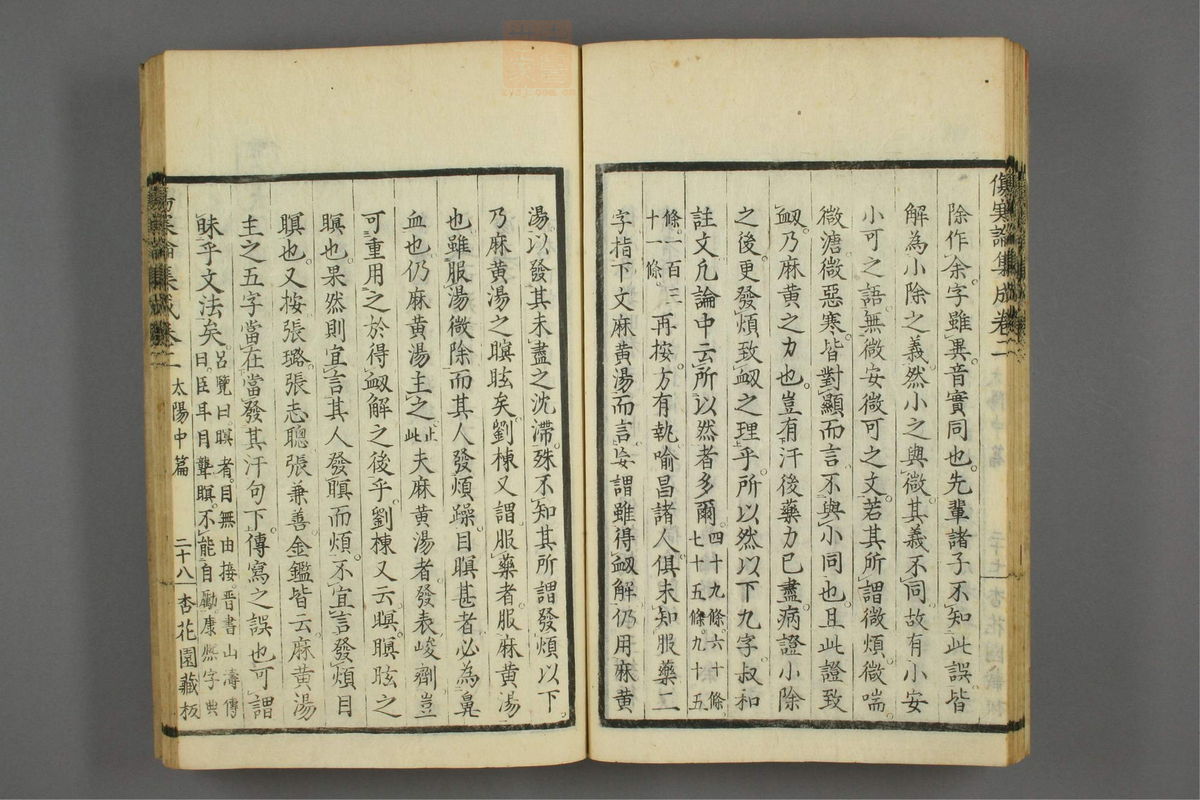 傷寒論集成卷二
除作余字雖異音實同也先輩諸子不知此誤皆
解為小除之義然小之與微其義不同故有小安
小可之語無微安微可之文若其所謂微煩微喘
微溏微惡寒皆對顯而言不與小同也且此證致
衂乃麻黄之力也豈有汗後藥力已盡病證小除
之後更發煩致衂之理乎所以然以下九字叔和
註文凡論中云所以然者多爾四十九條六十條
七十五條九十五
條一百三
十一條再按方有執喻昌諸人俱未知服藥二
字指下文麻黄湯而言妄謂雖得衂解仍用麻黄
湯以發其未盡之沈滯殊不知其所謂發煩以下
乃麻黄湯之瞑眩矣劉棟又謂服藥者服麻黄湯
也雖服湯微除而其人發煩躁目瞑甚者必為鼻
血也仍麻黄湯主之止
此夫麻黄湯者發表峻劑豈
可重用之於得衂解之後乎劉棟又云瞑瞑眩之
瞑也果然則宜言其人發瞑而煩不宜言發煩目
瞑也又按張璐張志聰張兼善金鑑皆云麻黄湯
主之五字當在當發其汗句下傳寫之誤也可謂
昧乎文法矣呂覽曰瞑者目無由接晋書山濤傳
曰臣耳目聾瞑不能自勵康煕字典
傷寒論集成卷二 太陽中篇 二十八 杏花園藏板